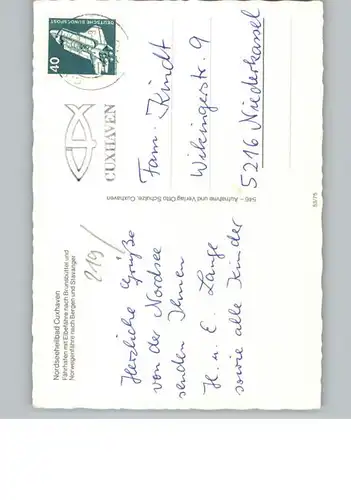 Nordseeheilbad Cuxhaven
Fährhafen mit Elbefähre nach Brunsbüttel und
Norwegenfähre nach Bergen und Stavanger
219/
Herzliche Grüße
von der Nordsee
senden Ihnen
H. u. E. Lange
sowie alle Kinder
546 – Aufnahme und Verlag Otto Schulze, Cuxhaven
40
DEUTSCHE BUNDESPOST
CUXHAVEN
Fam. Kindt
Wikingerstr. 9
5216 Niederkassel